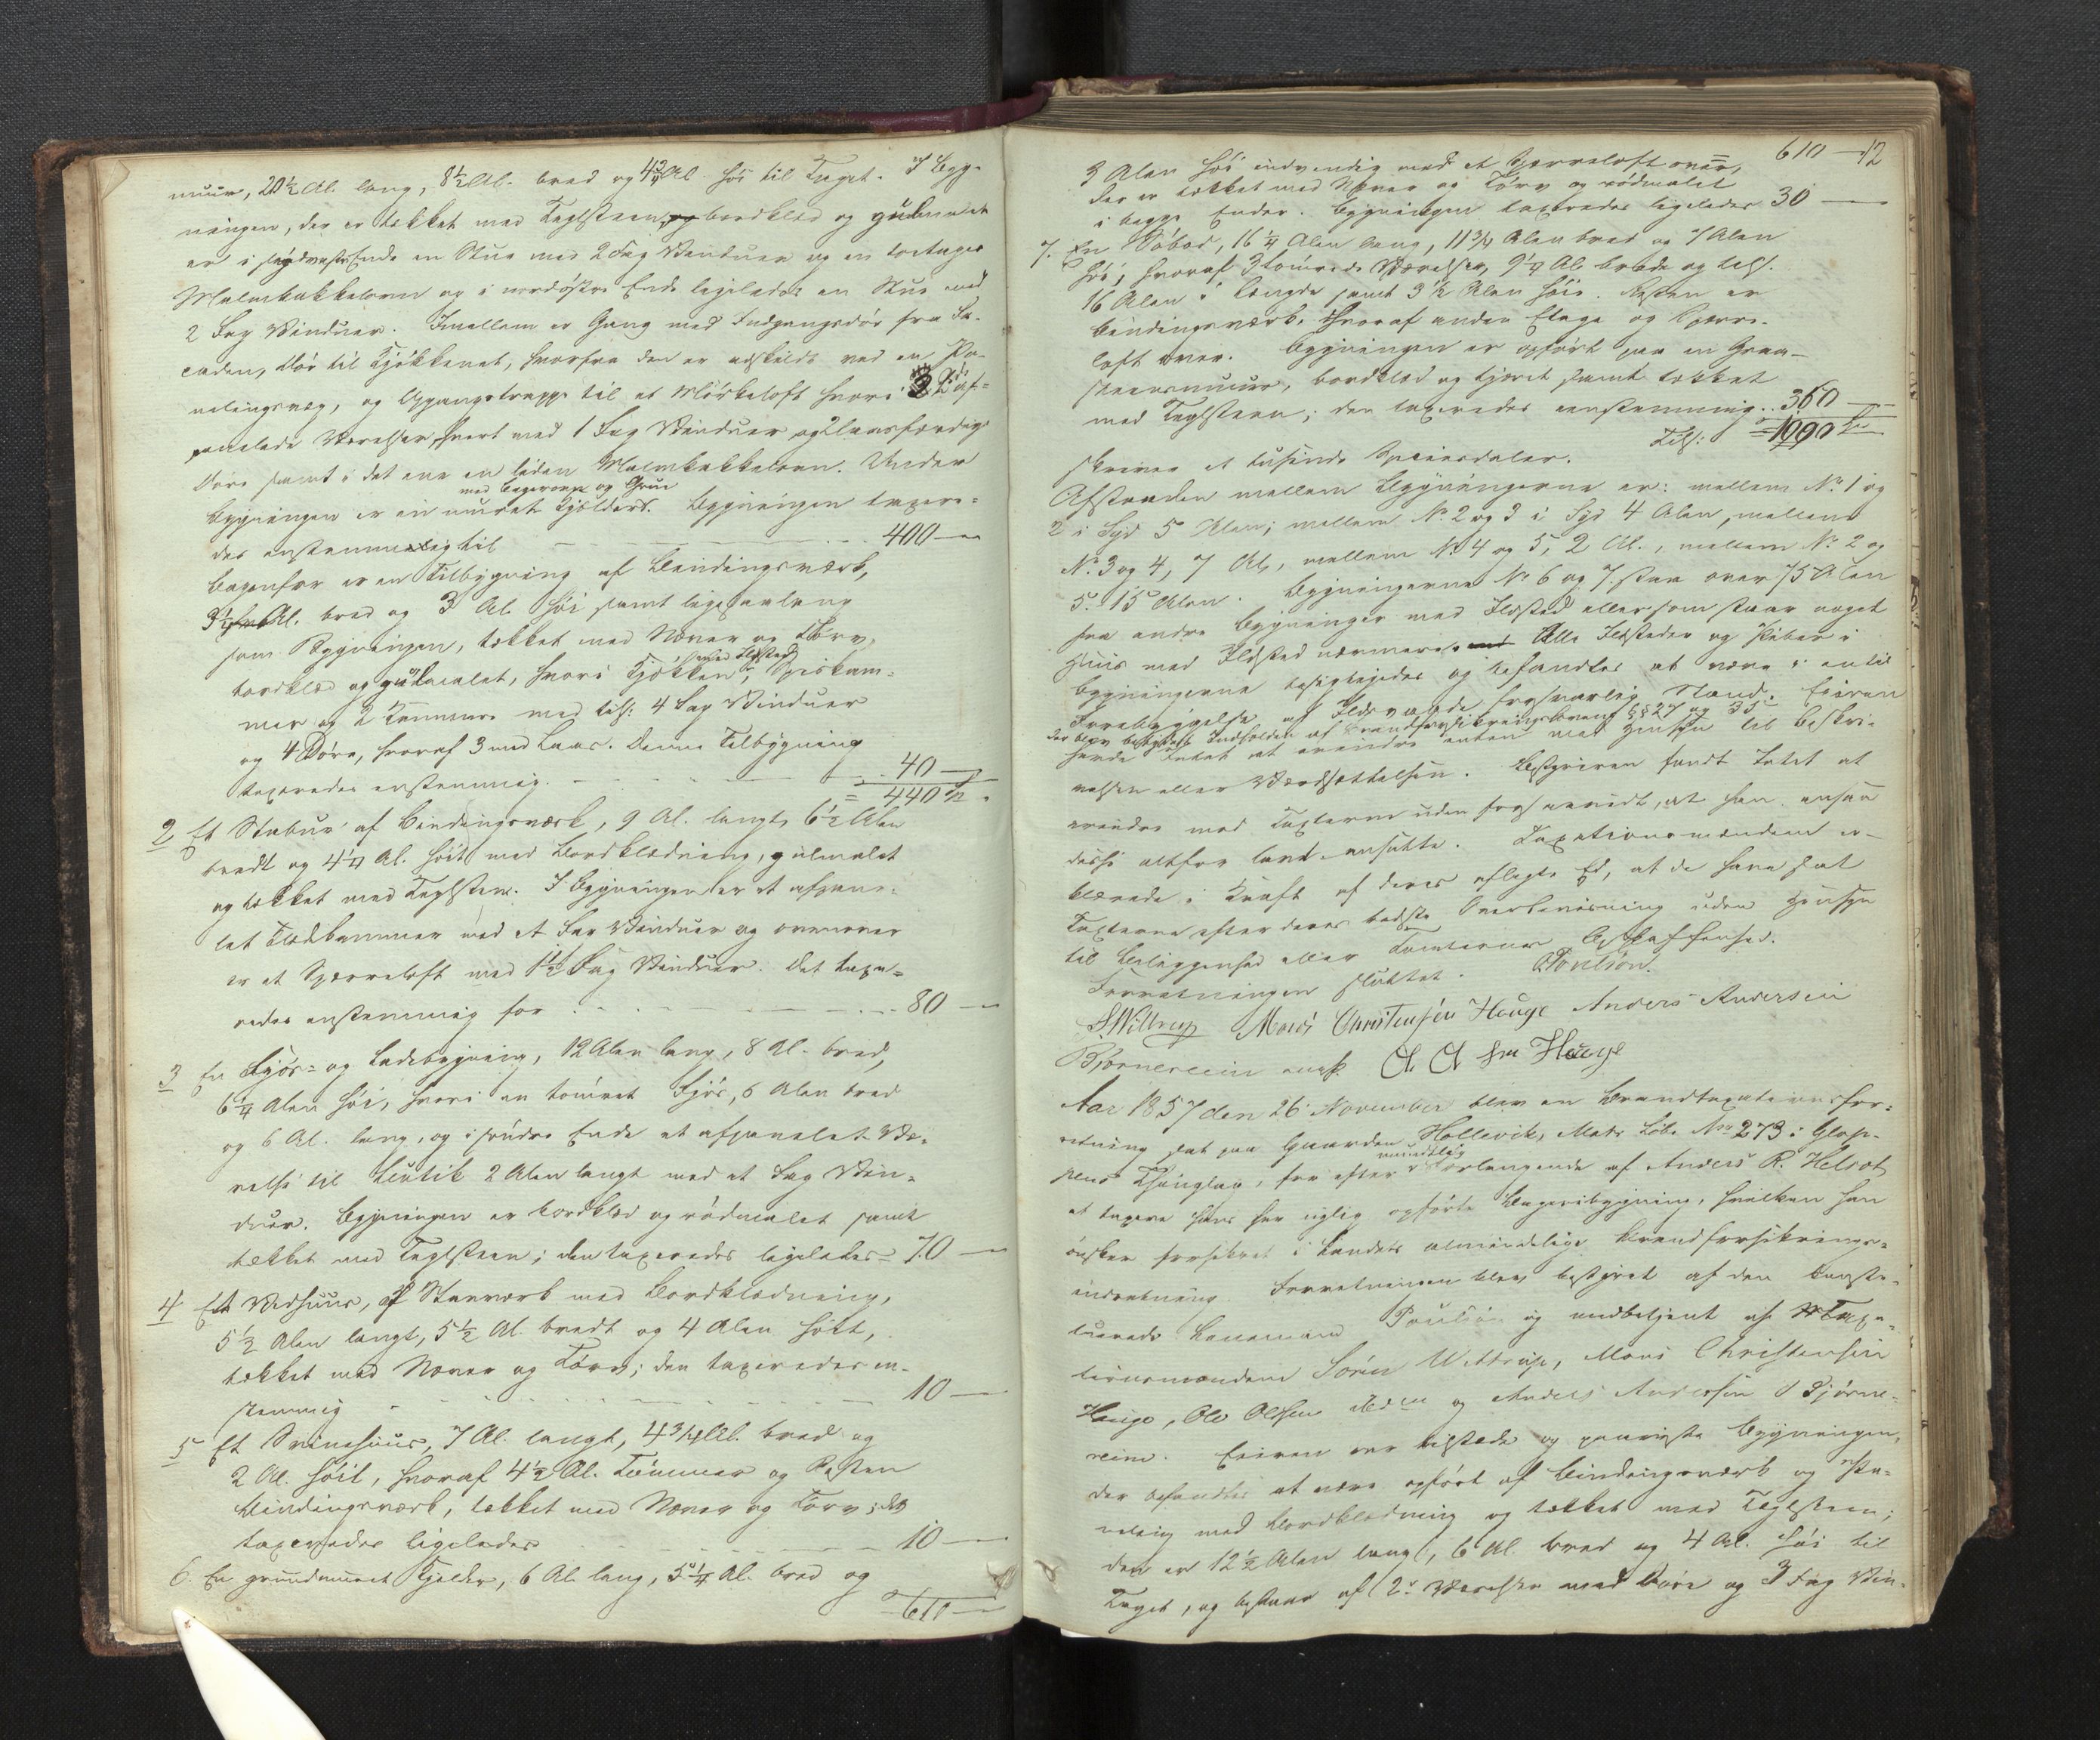 muur, 20½ Al. lang, 8½ Al. bred og 4¾ Al. høi til Taget. I Byg-
ningen, der er tækket med Taglsteen, bordklæd og guulmalet
er i sydvestre Ende en Stue med 2 Fag Vinduer og en toetages
Malmkakkelovn og i nordøstre Ende ligeledes en Stue med
2 Fag Vinduer. Imellem er Gang med Indgangsdør fra Fa-
caden, Dør til Kjøkkenet, hvorfra den er adskildt ved en Pa-
nelingsvæg, og Opgangstrappe til et Mørkeloft hvori 2 af-
panelede Værelser, hvert med 1 Fag Vinduer og laasfærdig
Dør samt i det ene en liden Malmkakkelovn. Under
med Bagerovn og Grue
Bygningen er en muret Kjelder. Bygningen taxere-
des enstemmig til 400 —
Bagenfor er en Tilbygning af Bindingsværk,
3¼ Al. bred og 3 Al. høi samt ligesaalang
som Bygningen, tækket med Næver og Tørv,
med Ildsted
bordklæd og guulmalet, hvori Kjøkken, Spiskam-
mer og 2 Kammere med tils: 4 Fag Vinduer
og 4 Døre, hvoraf 3 med Laas. Denne Tilbygning
taxeredes enstemmig 40 —
= 440
2 Et Stabur af Bindingsværk, 9 Al. langt, 6½ Alen
bredt og 4¼ Al. høit med Bordklædning, guulmalet
og tækket med Taglsteen. I Bygningen er et afpane-
let Klædkammer med et Fag Vinduer og ovenover
er et Sperreloft med 1½ Fag Vinduer. Det taxe-
redes enstemmig for 80 —
3 En Fjøs- og Ladebygning, 12 Alen lang, 8 Al. bred,
6¼ Alen høi, hvori en tømret Fjøs, 6 Alen bred
og 6 Al. lang, og i søndre Ende et afpanelet Væ-
relse til Butik 2 Alen langt med et Fag Vin-
duer. Bygningen er bordklæd og rødmalet samt
tækket med Taglsteen; den taxeredes ligeledes 70 —
4 Et Vedhuus, af Stavværk med Bordklædning,
5½ Alen langt, 5½ Al. bredt og 4 Alen høit,
tækket med Næver og Tørv; den taxeredes en-
stemmig 10 —
5 Et Svinehuus, 7 Al. langt, 4¾ Al. bred og
2 Al. høit, hvoraf 4½ Al. Tømmer og Resten
Bindingsværk, tækket med Næver og Torv; det
taxeredes ligeledes 10 —
6. En grundmuret Kjelder, 6 Al. lang, 5¼ Al. bred og
610 —
610 — 12
3 Alen høi indvendig med et Sperreloft over,
der er tækket med Næver og Tørv og rødmalet
i begge Ender. Bygningen taxeredes ligeledes 30 —
7. En Søbod, 16¼ Alen lang, 11¾ Alen bred og 7 Alen
høi, hvoraf 3 tømrede Værelser, 9¼ Al. brede og tils.
16 Alen i Længde samt 3½ Alen høie. Resten er
Bindingsværk, hvoraf anden Etage og Sperre-
loft over. Bygningen er opført paa en Graa-
steensmuur, bordklæd og tjæret samt tækket
med Taglsteen; den taxeredes enstemmig 360 —
Tils: = 1000
skriver et tusinde Speciesdaler.
Afstanden mellem Bygningerne er: mellem No 1 og
2 i Syd 5 Alen; mellem No 2 og 3 i Syd 4 Alen, mellem
No 3 og 4, 7 Al., mellem No 4 og 5, 2 Al., mellem No 2 og
5. 15 Alen. Bygningerne No 6 og 7 staa over 75 Alen
fra andre Bygninger med Ildsted eller som staar noget
Huus med Ildsted nærmere. Alle Ildsteder og Piber i
Bygningerne besigtigedes og befandtes at være i en til
Forebyggelse af Ildsvaade forsvarlig Stand. Eieren
der blev bekjendt Indholden af Brandforsikringslovens §§ 27 og 35
havde Intet at erindre enten med Hensyn til Beskri-
velsen eller Værdsættelsen. Bestyreren fandt Intet at
erindre med Taxterne uden forsaavidt, at han ansaa
disse altfor lavt ansatte. Taxationsmændene er-
klærede i Kraft af deres aflagte Ed, at de have sat
Taxterne efter deres bedste Overbeviisning uden Hensyn
til Beliggenhed eller Tomternes Beskaffenhed.
Forretningen sluttet. Poulson.
SWittrup Mons Christensen Houge Anders Andersen
Bjørnereim O O søn Houge
Aar 1857 den 26 November blev en Brandtaxationsfor-
retning sat paa Gaarden Hollevik, Matr. Løbe No 273 i Glop-
mundtlig
pens Thinglag, for efter Forlangende af Anders R. Helset
at taxere hans her nylig opførte Bageribygning, hvilken han
ønsker forsikret i Landets almindelige Brandforsikrings-
indretning. Forretningen blev bestyret af den konsti-
tuerede Lensmand Poulson og medbetjent af Taxa-
tionsmændene Søren Wittrup, Mons Christensen
Houge, Ole Olsen ibdm og Anders Andersen Bjørne-
reim. Eieren var tilstede og paaviste Bygningen,
der befandtes at være opført af Bindingsværk og Pa-
neling med Bordklædning og tækket med Taglsteen;
den er 12½ Alen lang, 6 Al. bred og 4 Al. høi til
Taget, og bestaar af 2 Værelser med Døre og 3 Fag Vin-